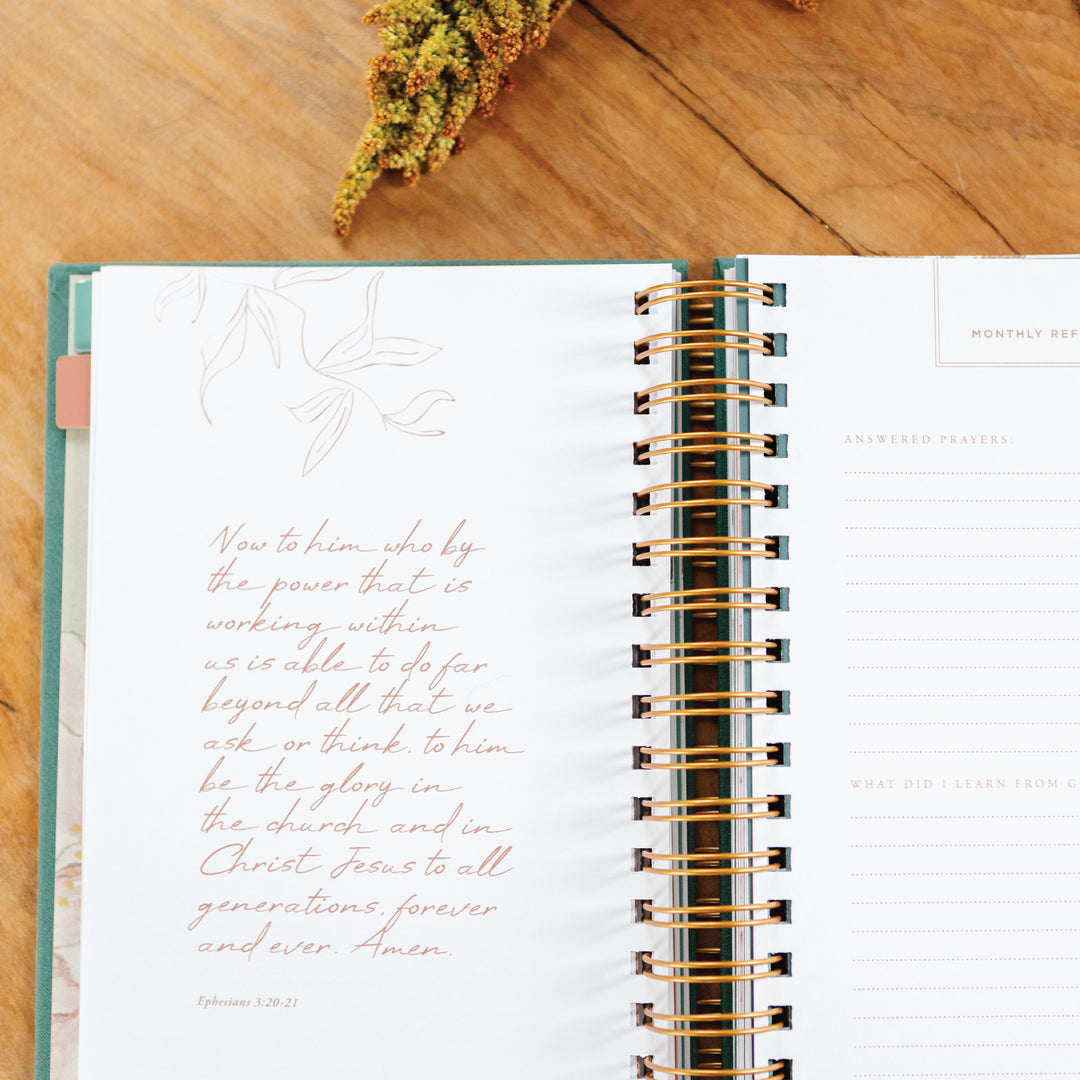 Now to him who by
the power that is
working within
us is able to do far
beyond all that we
ask or think, to him
be the glory in
the church and in
Christ Jesus to all
generations, forever
and ever. Amen.
Ephesians 3:20-21
MONTHLY REF
ANSWERED PRAYERS:
WHAT DID I LEARN FROM G